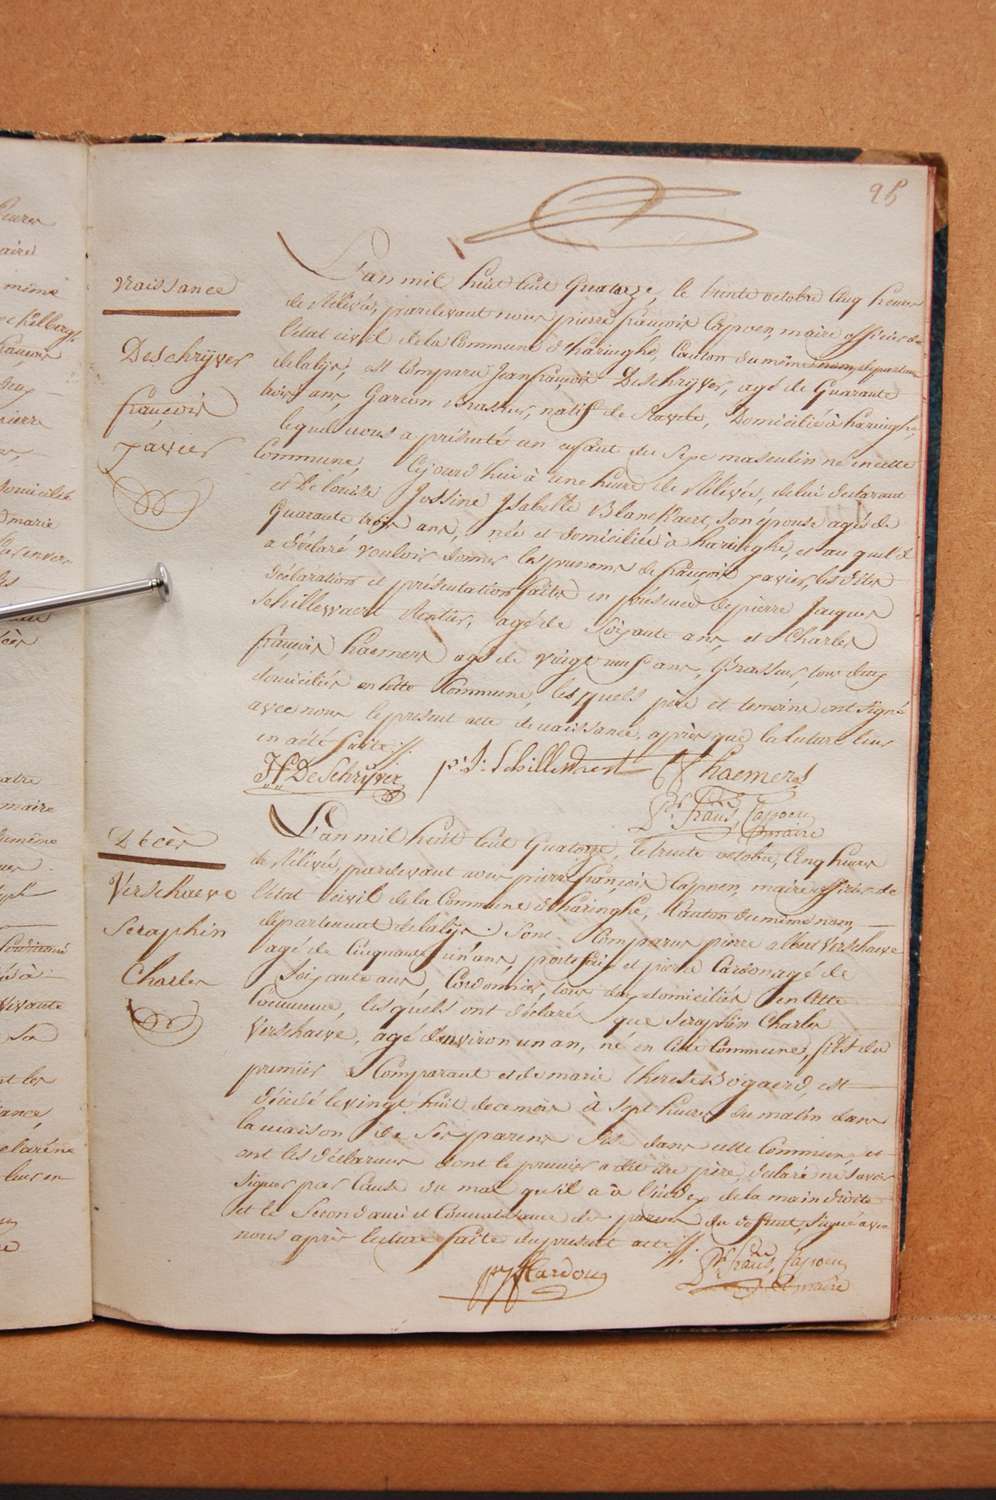 25
Naissance
Deschryver
françois
xavier
L'an mil huit Cent Quatorze, le trente octobre Cinq heures
de Relevée, pardevant nous pierre françois Capoen, maire officier de
l'état civil de la Commune d'haringhe, Canton du même nom, departem
de la lys, est Comparu Jean françois DeSchryver, agé de Quarante
trois ans, Garcon Brasseur, natif de Stavele, Domicilié à haringhe,
lequel nous a présenté un enfant du Sexe masculin né en cette
Commune, Cejourd'hui à une heure de Relevée, de lui déclarant
et De louise Jossine Isabelle Blanckaert, son épouse agée de
Quarante trois ans, née et domiciliée à haringhe, et au quel il
a déclaré vouloir donner les prenoms de françois xavier, les dites
déclaration et présentation faites en présence de pierre Jacques
Schillewaert Rentier, agé de Soixante ans, et Charles
françois haemers agé de vingt neuf ans, Brasseur, tous deux
domiciliés en cette Commune, les quels père et temoins ont signé
avec nous le present acte de naissance, après que lecture leur
en a été faite ./.
J f DeSchryver p: J: Schillewaert C f haemers
Pre frans. Capoen
maire
Décès
Verschaeve
Seraphin
Charles
L'an mil huit Cent Quatorze, le trente octobre, Cinq heures
de Relevée, pardevant nous pierre françois Capoen, maire officier de
l'état Civil de la Commune d'haringhe, Canton du même nom,
département de la lys: Sont Comparus pierre albert Verschaeve
agé de Cinquante un ans, et pierre Cardon agé de
Soixante ans, Cordonnier, tous deux domiciliés en cette
Commune, les quels ont déclaré que Seraphin Charles
Verschaeve, agé d'environ un an, né en Cette Commune, fils du
premier Comparant et de marie therese Bogaerd, est
décédé le vingt huit de ce mois à Sept heures du matin dans
la maison de Ses parens Sise dans cette Commune et
ont les déclarans dont le premier a dit être père, déclaré ne savoir
signer par Cause du mal qu'il a à l'index de la main droite
et le Second ami et Connaissance de parens du défunt, signé avec
nous après lecture faite du présent acte ./.
p J Cardon
Pre frans. Capoen
maire